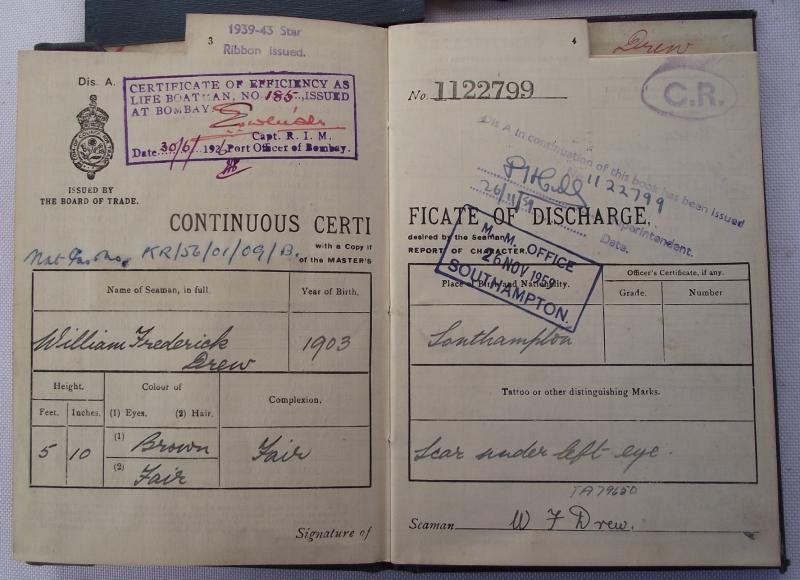 3
1939-43 Star
Ribbon issued.
Dis. A.
CERTIFICATE OF EFFICIENCY AS
LIFE BOATMAN, NO. 185, ISSUED
AT BOMBAY
Capt. R. I. M.
Date 30/6/1926 Port Officer of Bombay.
ISSUED BY
THE BOARD OF TRADE.
CONTINUOUS CERTI
with a Copy if
of the MASTER'S
KR/56/01/09/B.
Name of Seaman, in full.
Year of Birth.
William Frederick
Drew
1903
Height.
Colour of
Complexion.
Feet.
Inches.
(1) Eyes.
(2) Hair.
5
10
(1) Brown
(2) Fair
Fair
Signature of
4
Drew
No. 1122799
C.R.
Dis A In continuation of this book has been issued
No 1122799
26/11/59
Superintendent.
Date.
FICATE OF DISCHARGE.
desired by the Seaman
REPORT OF CHARACTER.
M. M. OFFICE
26 NOV 1959
SOUTHAMPTON.
Place of Birth and Nationality.
Officer's Certificate, if any.
Grade.
Number.
Southampton
Tattoo or other distinguishing Marks.
Scar under left eye.
TA79650
Seaman W F Drew.